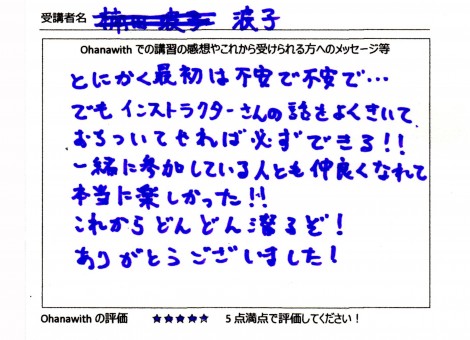 受講者名 浪子
Ohanawith での講習の感想やこれから受けられる方へのメッセージ等
とにかく最初は不安で不安で…
でもインストラクターさんの話をよくきいて
おちついてやれば必ずできる!!
一緒に参加している人とも仲良くなれて
本当に楽しかった!!
これからどんどん潜るぞ!
ありがとうございました!
Ohanawith の評価 ★★★★★ 5点満点で評価してください!